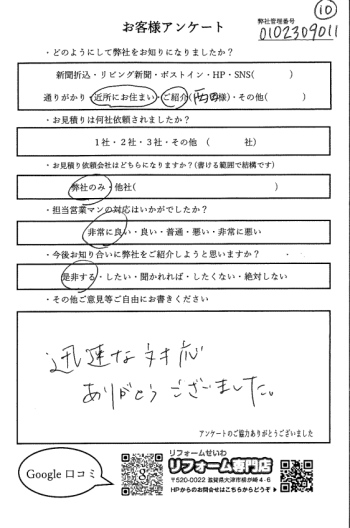 ⑩
お客様アンケート
弊社管理番号
0102309011
・どのようにして弊社をお知りになりましたか？
新聞折込・リビング新聞・ポストイン・HP・SNS(　　　)
通りがかり・近所にお住まい・ご紹介(西田様)・その他(　　　)
・お見積りは何社依頼されましたか？
1社・2社・3社・その他　(　　　社)
・お見積り依頼会社はどちらになりますか？(書ける範囲で結構です)
弊社のみ・他社(　　　)
・担当営業マンの対応はいかがでしたか？
非常に良い・良い・普通・悪い・非常に悪い
・今後お知り合いに弊社をご紹介しようと思いますか？
是非する・したい・聞かれれば・したくない・絶対しない
・その他ご意見等ご自由にお書きください
迅速な対応
ありがとうございました。
アンケートのご協力ありがとうございました
Google 口コミ
g
リフォームせいわ
リフォーム専門店
〒520-0022 滋賀県大津市柳が崎4-6
HPからのお問合せはこちらからどうぞ▶